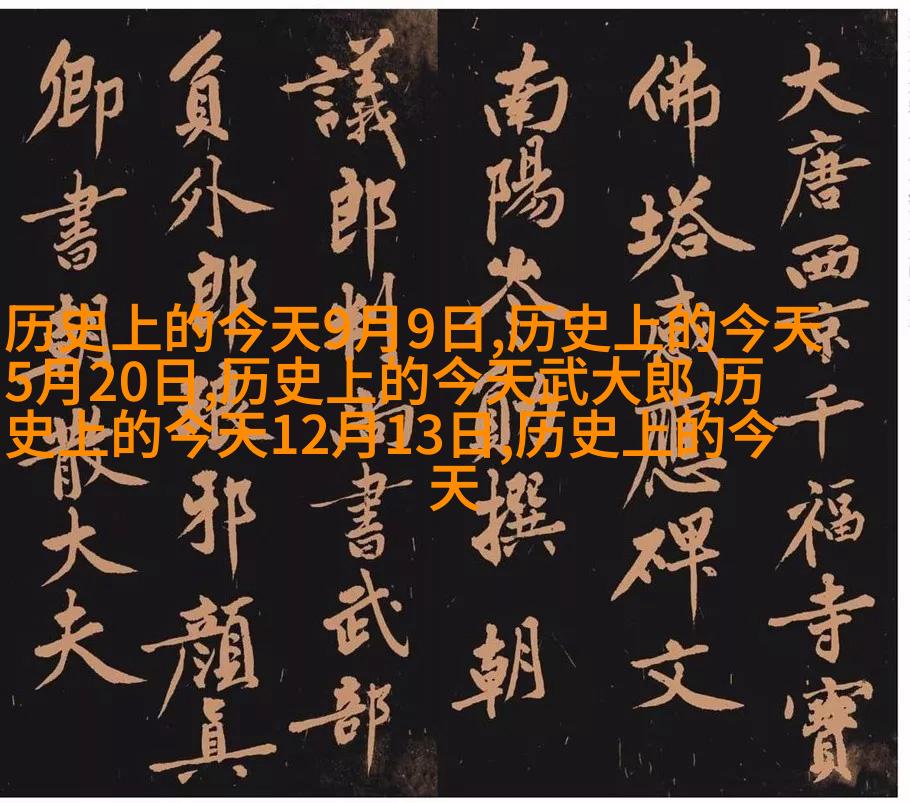 历史上的今天9月9日,历史上的今天,
5月20日,历史上的今天武大郎,历
史上的今天12月13日,历史上的今
天
大唐西京千福寺寶
佛塔感應碑文
南陽岑撰 朝
議郎判尚書武部
員外郎琅邪顔眞
卿書朝散大夫